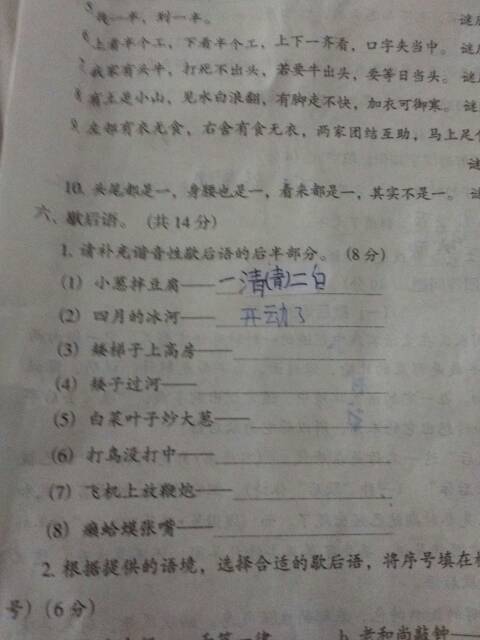 找一半，到一半。 谜底
6. 上看半个工，下看半个工，上下一齐看，口字夹当中。 谜底
7. 我家有头牛，打死不出头，若要牛出头，要等日当头。 谜底
8. 有土是小山，见水白浪翻，有脚走不快，加衣可御寒。 谜
9. 左部有衣无食，右舍有食无衣，两家团结互助，马上足
谜
10. 头尾都是一，身腰也是一，看来都是一，其实不是一。 谜
六、歇后语。（共14分）
1. 请补充谐音性歇后语的后半部分。（8分）
（1）小葱拌豆腐——一清(青)二白
（2）四月的冰河——开动了
（3）矮梯子上高房——
（4）矮子过河——
（5）白菜叶子炒大葱——
（6）打鸟没打中——
（7）飞机上放鞭炮——
（8）癞蛤蟆张嘴——
2. 根据提供的语境，选择合适的歇后语，将序号填在
号）（6分）
b. 老和尚敲钟——